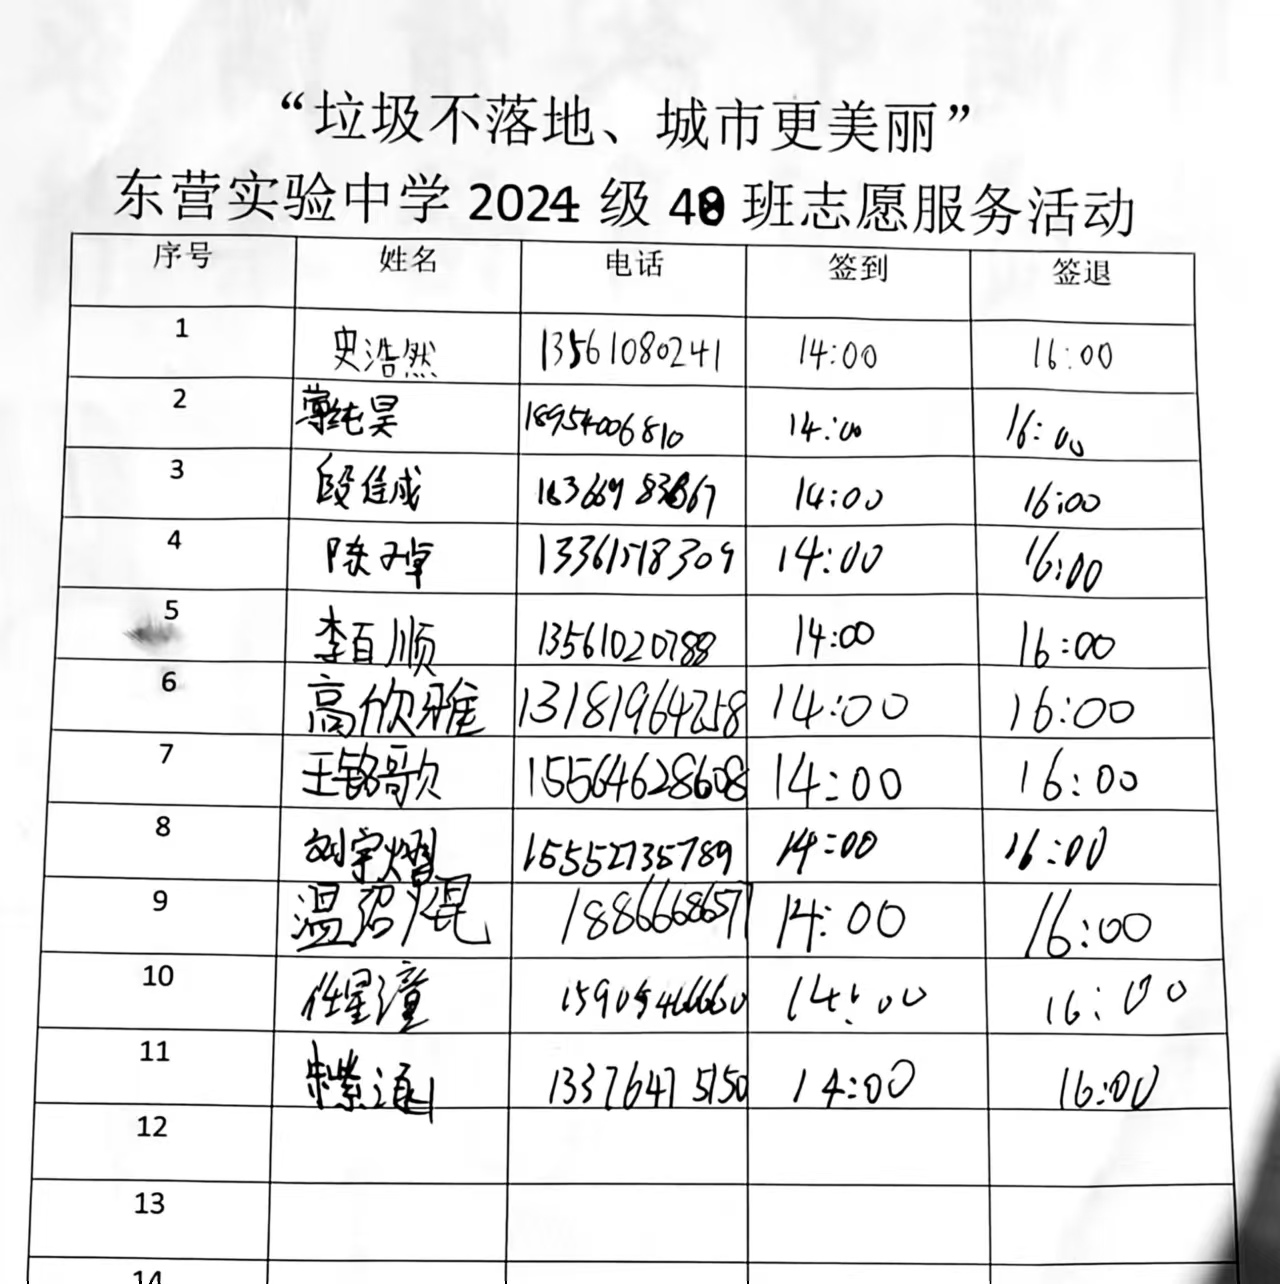 “垃圾不落地、城市更美丽”
东营实验中学 2024 级 48 班志愿服务活动
序号 姓名 电话 签到 签退
1 史浩然 13561080241 14:00 16:00
2 纯昊 18954006810 14:00 16:00
3 段佳成 14:00 16:00
4 陈子卓 13361518309 14:00 16:00
5 李百顺 13561020788 14:00 16:00
6 高欣雅 13181964258 14:00 16:00
7 王铭歌 15564628608 14:00 16:00
8 刘宇熠 15552735789 14:00 16:00
9 温绍焜 18866686571 14:00 16:00
10 任星潼 15905466660 14:00 16:00
11 朱紫涵 13376475150 14:00 16:00
12
13
14